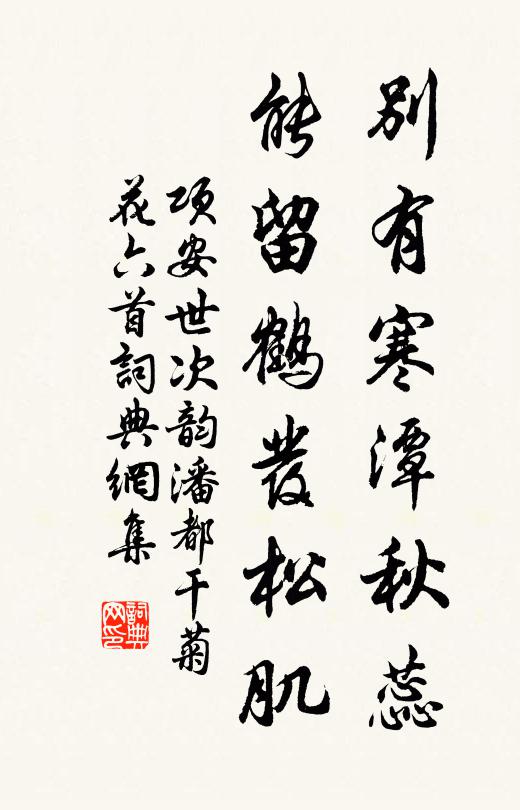 別有寒潭秋蕊
能留鶴發松肌
項安世次韵潘都干菊
花六首詞典網集
詞典
网印